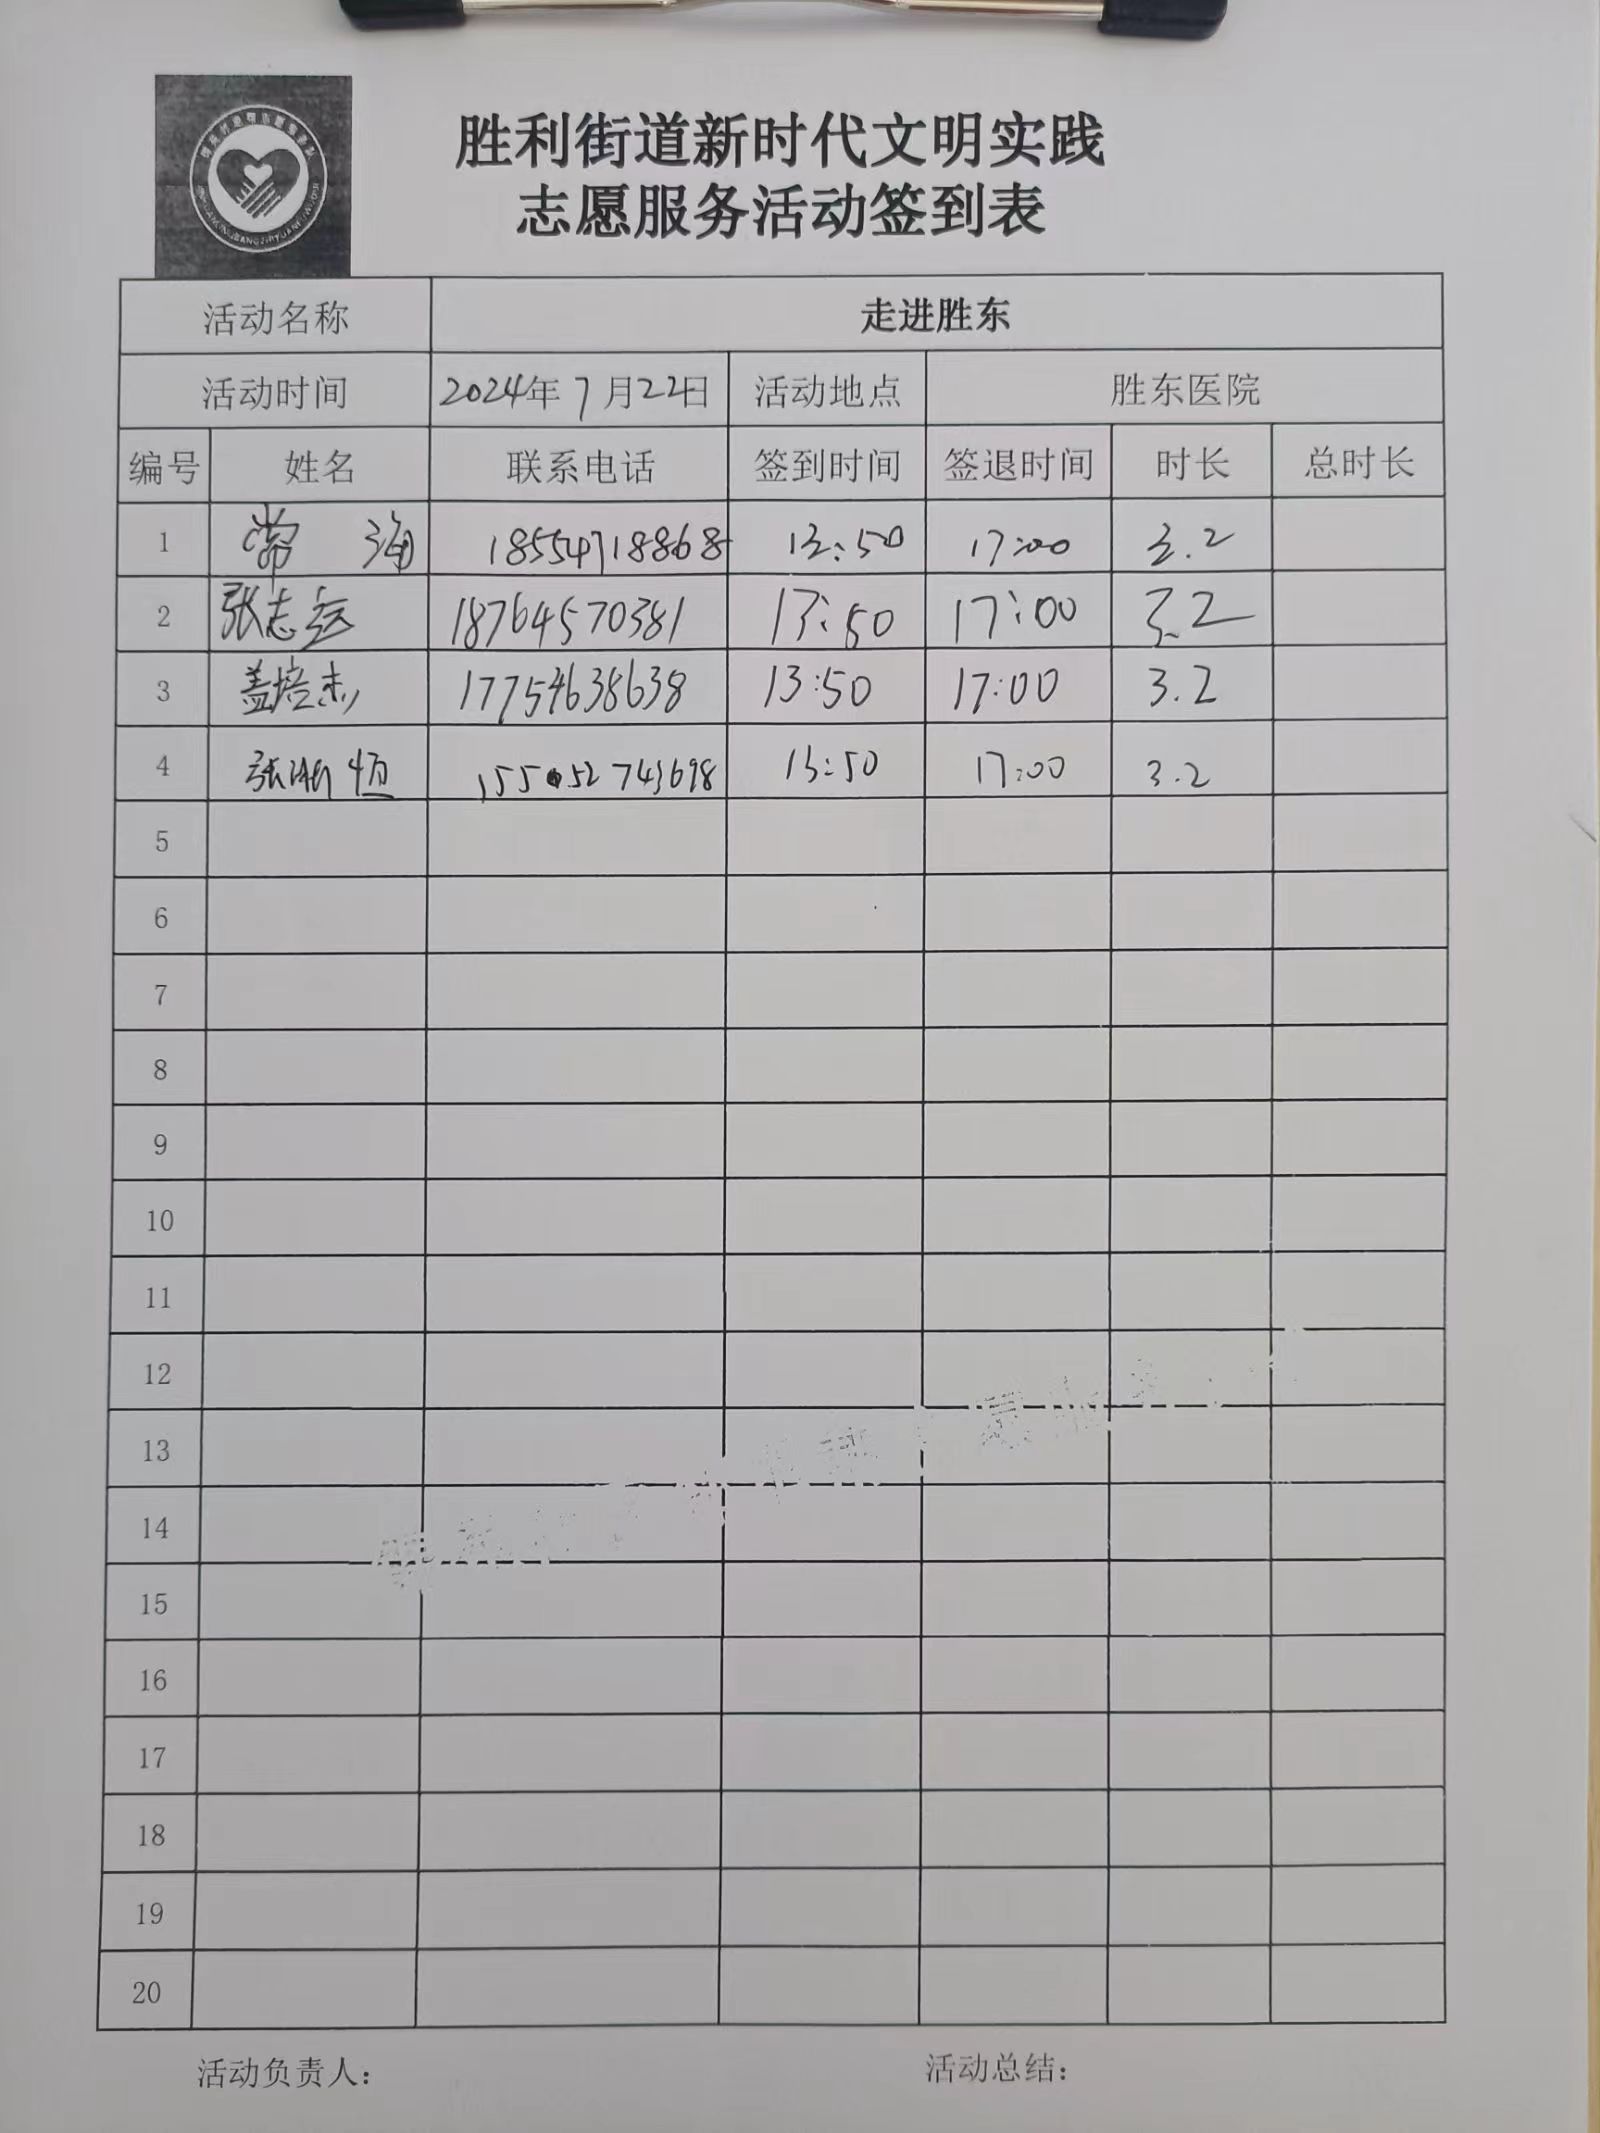 胜利街道新时代文明实践
志愿服务活动签到表
活动名称 走进胜东
活动时间 2024年7月22日 活动地点 胜东医院
编号 姓名 联系电话 签到时间 签退时间 时长 总时长
1 常海 18554718868 13:50 17:00 3.2
2 张志远 18764570381 13:50 17:00 3.2
3 盖培杰 17754638638 13:50 17:00 3.2
4 张 恒 155 52743698 13:50 17:00 3.2
5
6
7
8
9
10
11
12
13
14
15
16
17
18
19
20
活动负责人： 活动总结：